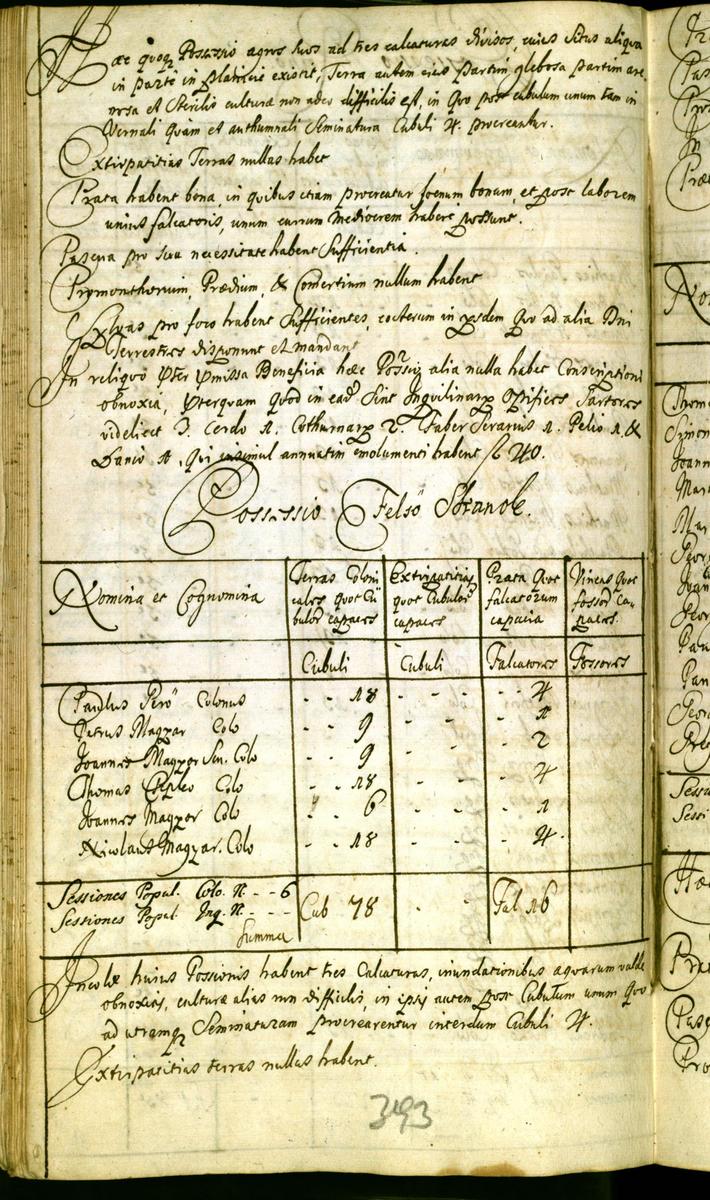 Hæc quoq Possessio agros suos ad tres calcaturas divisos, cuius situs aliqua
in parte in planicie existit, Terra autem eius partim glebosa partim are-
nosa et sterilis culturæ non adeo difficilis est, in quo post cubulum unum tam in
Vernali quam et authumnali Seminatura Cubuli 4. procreantur.
Extirpatitias Terras nullas habet
Prata habent bona, in quibus etiam procreatur foenum bonum, et post laborem
unius falcatoris, unum currum mediocrem habere possunt.
Pascua pro sua necessitate habent Sufficientia.
Promonthorium, Prædium, & Comertium nullum habent
Sylvas pro foco habent Sufficientes, cæterum in quo ad alia Dni
Terrestres disponunt et mandant
In reliquo Ppter Pmissa Beneficia hæc Possio alia nulla habet Conscriptioni
obnoxia, Pterquam quod in ead sint Opifices Sartores
videlicet 3. Cerdo 1. Cothurnar 2. Faber Serarius 1. Pelio 1. &
Lanio 1. Qui insimul annuatim emolumenti habent fl 40.
Possessio Felsö Sztanok.
Nomina et Cognomina
Terras Coloni
cales quot Cu
bulor capaces
Extirpatitias
quot Cubulor
capaces
Prata quot
falcatorum
capacia
Vineas quot
fossor Ca
paces.
Cubuli
Cubuli
Falcatores
Fossores
Paulus Perö Colonus - - 18 - - - - - 4
Petrus Magyar Colo - - 9 - - - - - 1
Joannes Magyar Sen. Colo - - 9 - - - - - 2
Thomas Colo - - 18 - - - - - 4
Joannes Magyar Colo - - 6 - - - - - 1
Nicolaus Magyar. Colo - - 18 - - - - - 4.
Sessiones Popul. Colo. N. - - 6
Sessiones Popul. Inq. N. - - -
Summa
Cub 78
- -
Fal 16
Incolæ huius Possionis habent tres Calcaturas, inundationibus aquarum valde
obnoxias, culturæ alias non difficilis, in ipsis autem post Cubulum unum quo
ad utramq Seminaturam procrearentur interdum Cubuli 4.
Extirpatitias terras nullas habent.
393